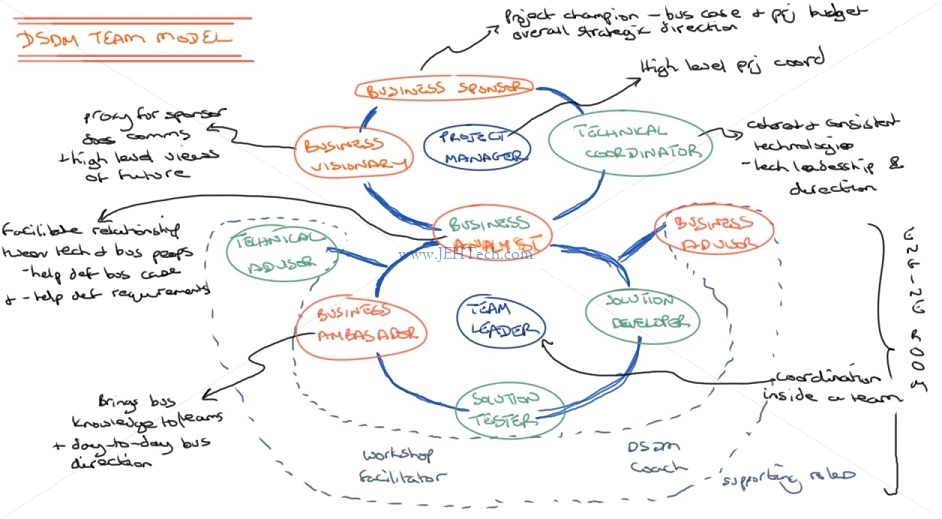 DSDM TEAM MODEL
Project champion - bus case + prj budget
overall strategic direction
High level prj coord
BUSINESS SPONSOR
proxy for sponsor
does comms
+ high level views
of future
BUSINESS
VISIONARY
PROJECT
MANAGER
TECHNICAL
COORDINATOR
coherent & consistent
technologies
- tech leadership &
direction
Facilitate relationship
tween tech & bus peops
- help def bus case
+ - help def requirements
TECHNICAL
ADVISOR
BUSINESS
ANALYST
www.JEHTech.com
BUSINESS
ADVISOR
ENGINE ROOM
BUSINESS
AMBASADOR
TEAM
LEADER
SOLUTION
DEVELOPER
Coordination
inside a team
SOLUTION
TESTER
Brings bus
knowledge to teams
+ day-to-day bus
direction
workshop
facilitator
DSDM
coach
supporting roles